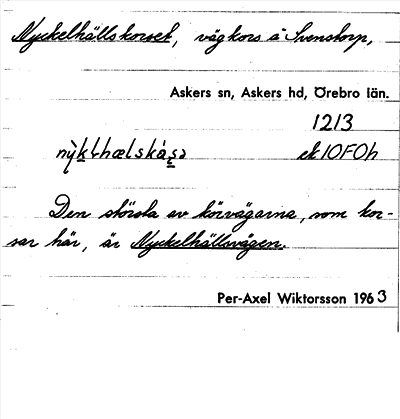 Nyckelhällskorset, vägkors å Svenstorp,
Askers sn, Askers hd, Örebro län.
1213
ek10F0h
Den största av körvägarna, som kor-
sar här, är Nyckelhällsvägen.
Per-Axel Wiktorsson 1963